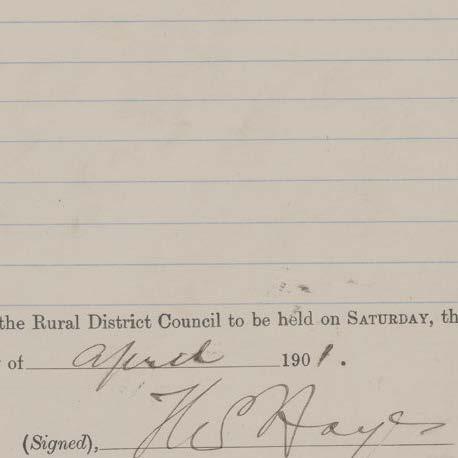 the Rural District Council to be held on SATURDAY, th
of April 1901.
(Signed), H S Hayes